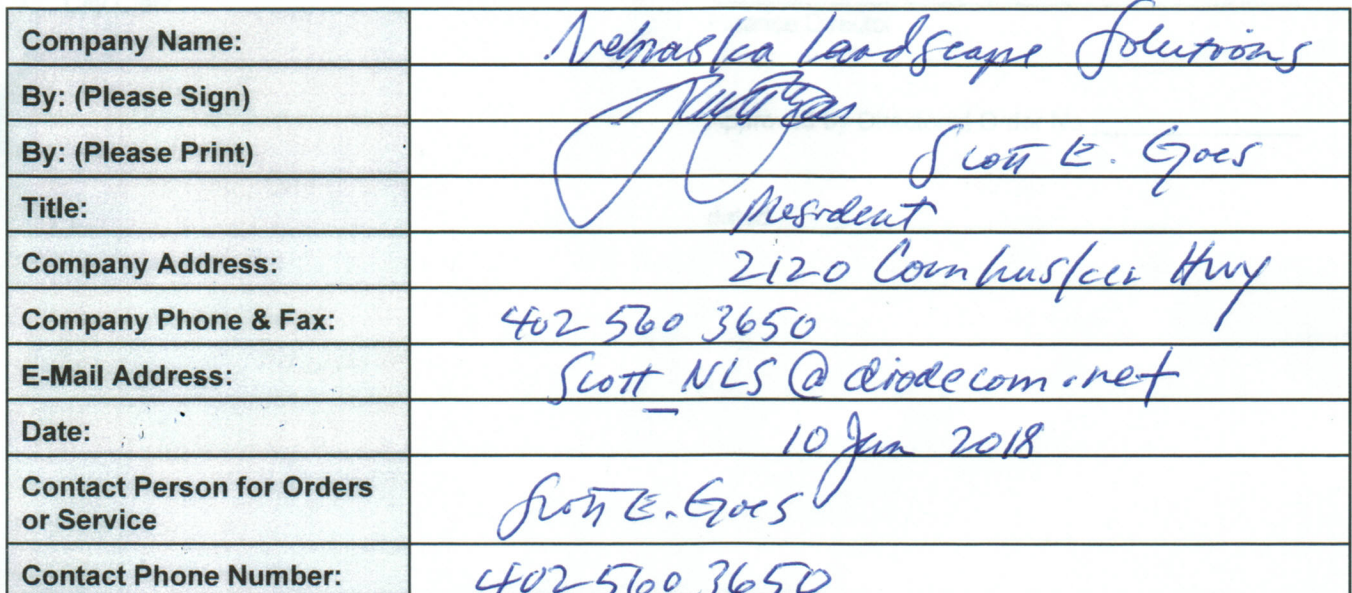 Company Name: Nebraska Landscape Solutions
By: (Please Sign)
By: (Please Print) Scott E. Goes
Title: President
Company Address: 2120 Cornhusker Hwy
Company Phone & Fax: 402 560 3650
E-Mail Address: Scott_NLS@diodecom.net
Date: 10 Jan 2018
Contact Person for Orders
or Service Scott E. Goes
Contact Phone Number: 402 560 3650